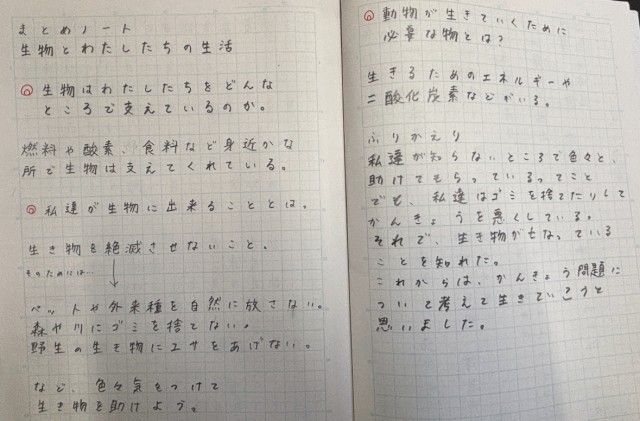 まとめノート
生物とわたしたちの生活
Q 生物はわたしたちをどんな
ところで支えているのか。
燃料や酸素、食料など身近かな
所で生物は支えてくれている。
Q 私達が生物に出来ることとは。
生き物を絶滅させないこと。
そのためには…
↓
ペットや外来種を自然に放さない。
森や川にゴミを捨てない。
野生の生き物にエサをあげない。
など、色々気をつけて
生き物を助けよう。
Q 動物が生きていくために
必要な物とは?
生きるためのエネルギーや
二酸化炭素などがいる。
ふりかえり
私達が知らないところで色々と、
助けてもらっているってこと
でも、私達はゴミを捨てたりして
かんきょうを悪くしている。
それで、生き物が亡なっている
ことを知れた。
これからは、かんきょう問題に
ついて考えて生きていこうと
思いました。